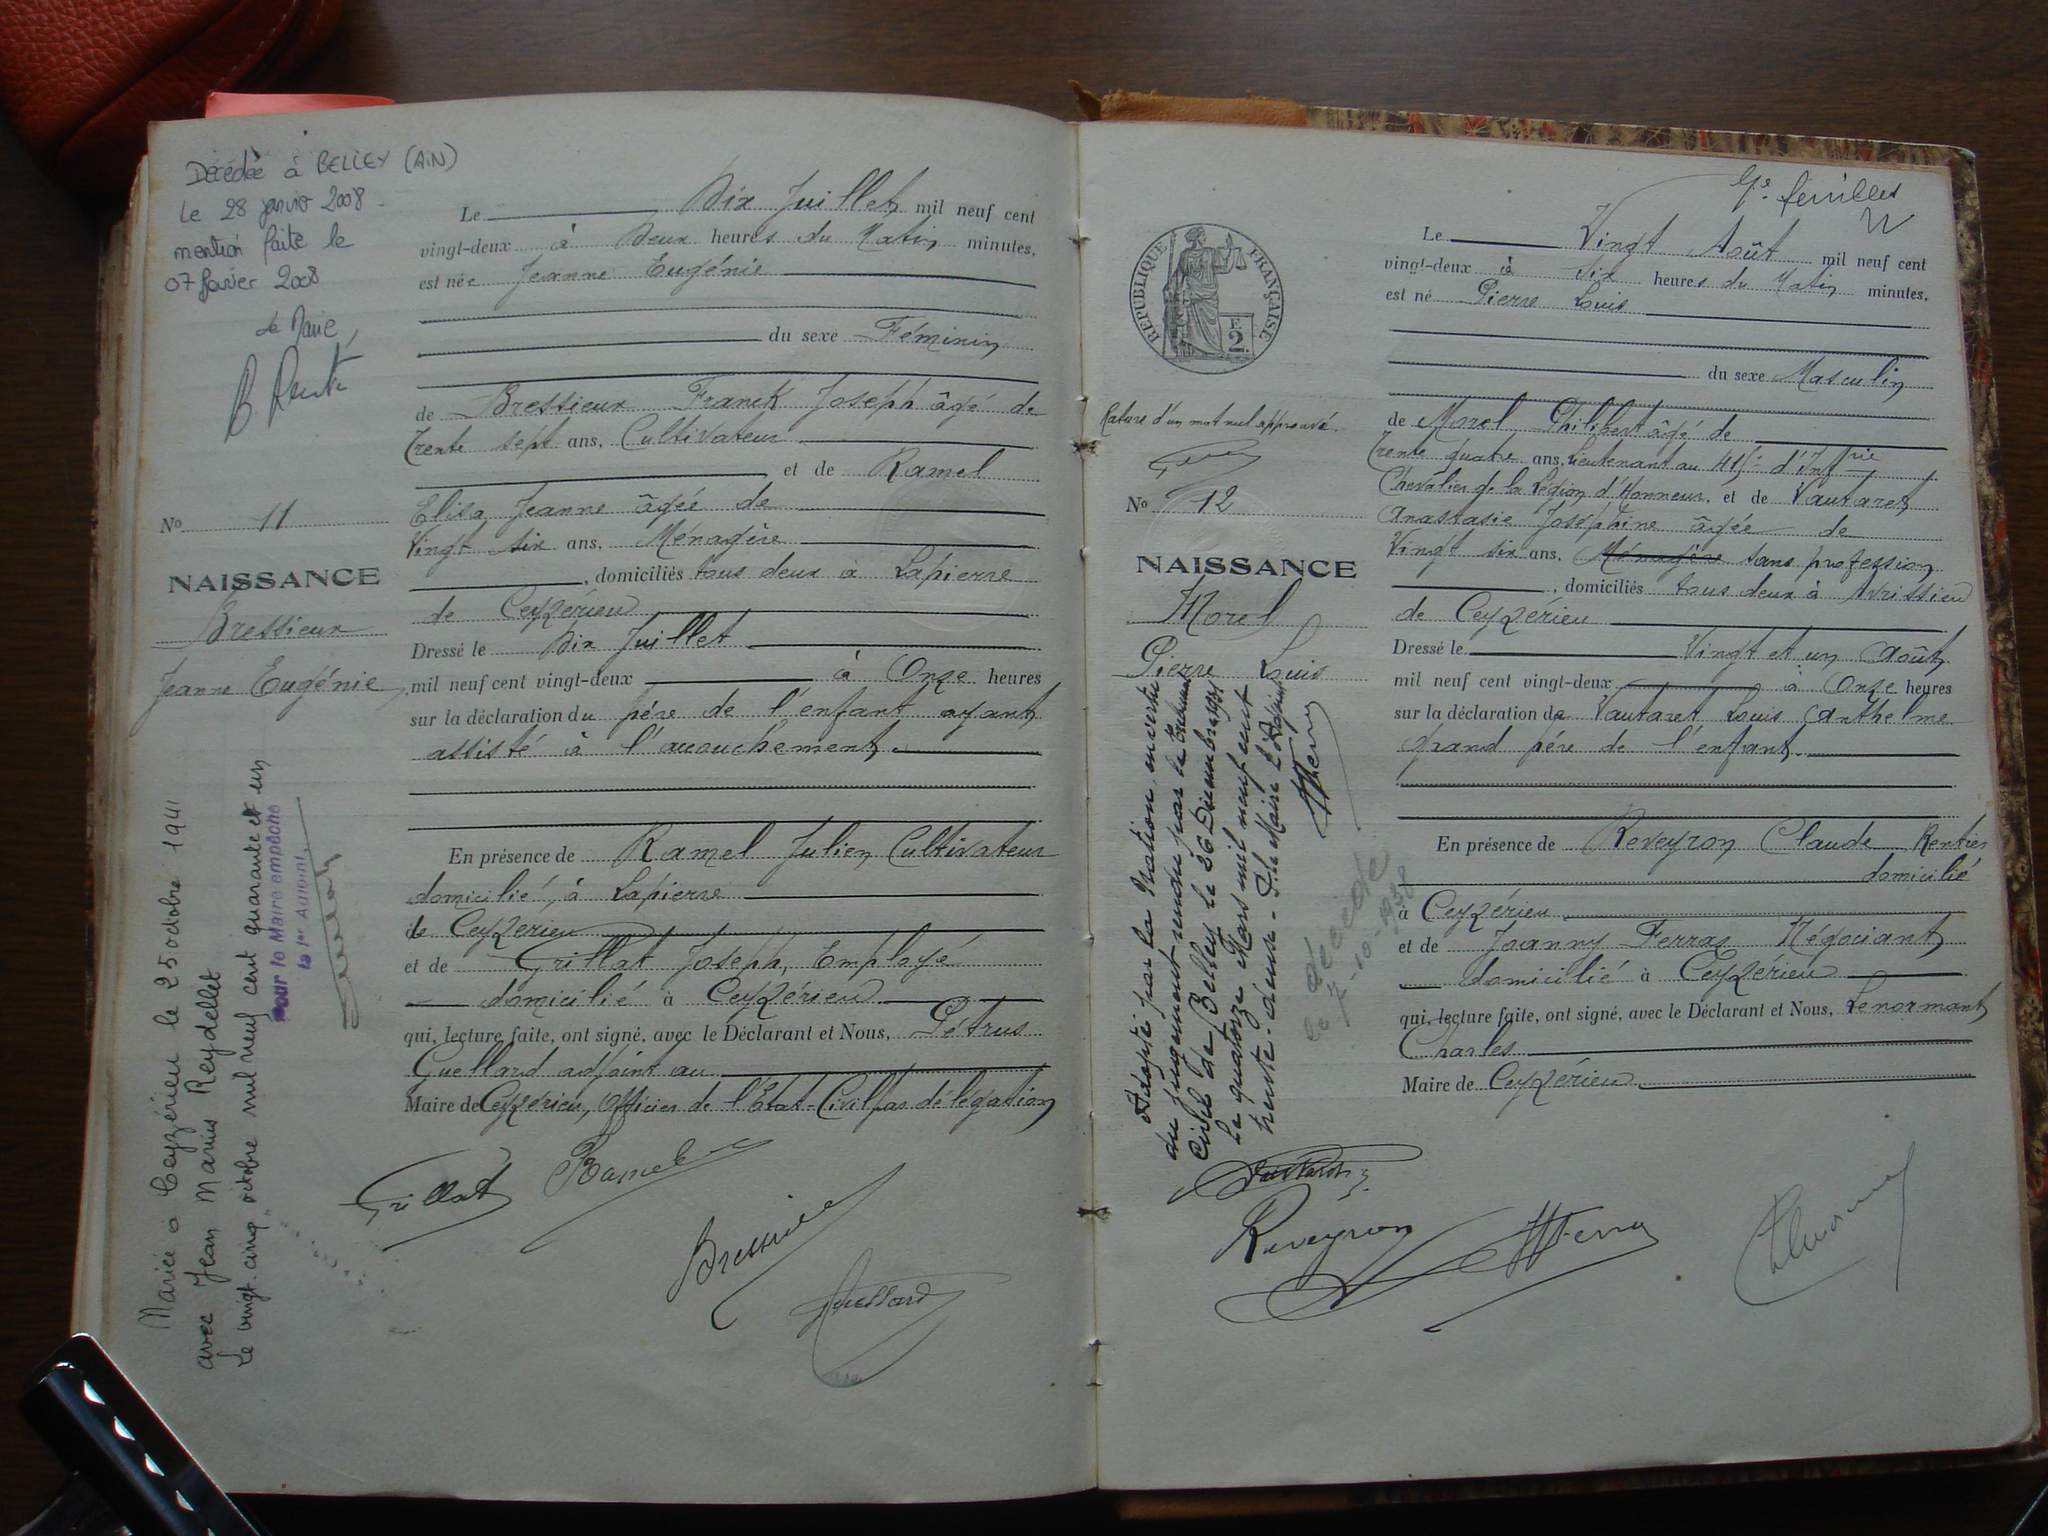 Décédée à BELLEY (AIN)
Le 28 janvier 2008.
mention faite le
07 février 2008
Le Maire,
No 11
NAISSANCE
Bressieux
Jeanne Eugénie
Mariée à Ceyzérieu le 25 octobre 1941
avec Jean Marius Reydellet
Le vingt-cinq octobre mil neuf cent quarante et un
Pour le Maire empêché
Le 1er Adjoint,
Le Dix Juillet mil neuf cent
vingt-deux à Deux heures du Matin minutes,
est née Jeanne Eugénie
du sexe Féminin
de Bressieux Franck Joseph âgé de
Trente sept ans, Cultivateur
et de Ramel
Elisa Jeanne âgée de
Vingt six ans, Ménagère
, domiciliés tous deux à Lapierre
de Ceyzérieu
Dressé le Dix Juillet
mil neuf cent vingt-deux à Onze heures
sur la déclaration du père de l'enfant ayant
assisté à l'accouchement.
En présence de Ramel Julien Cultivateur
domicilié, à Lapierre
de Ceyzérieu
et de Grillat Joseph, Employé
domicilié à Ceyzérieu
qui, lecture faite, ont signé, avec le Déclarant et Nous, Pétrus
Guellard adjoint au
Maire de Ceyzérieu, Officier de l'Etat-Civil par délégation
Grillat Ramel
Bressieux
Guellard
4e feuilles
REPUBLIQUE FRANÇAISE
F.
2.
Rature d'un mot nul approuvé.
No 12
NAISSANCE
Morel
Pierre Louis
Adopté par la Nation, en vertu
du jugement rendu par le Tribunal
Civil de Belley le 26 Décembre 1931
Le quatorze Mars mil neuf cent
trente-deux - Le Maire
Décédé
le 7-10-1938
Le Vingt Août mil neuf cent
vingt-deux à Six heures du Matin minutes,
est né Pierre Louis
du sexe Masculin
de Morel Philibert âgé de
Trente quatre ans, lieutenant au d'Infrie
Chevalier de la Légion d'Honneur, et de Vautaret
Anastasie Joséphine âgée de
Vingt six ans, Ménagère sans profession
, domiciliés tous deux à Avrissieu
de Ceyzérieu
Dressé le Vingt et un Août
mil neuf cent vingt-deux à Onze heures
sur la déclaration de Vautaret Louis Anthelme
Grand père de l'enfant.
En présence de Reveyron Claude Rentier
domicilié
à Ceyzérieu
et de Joanny Ferraz Négociant
domicilié à Ceyzérieu
qui, lecture faite, ont signé, avec le Déclarant et Nous, Lenormant
Charles
Maire de Ceyzérieu
Reveyron